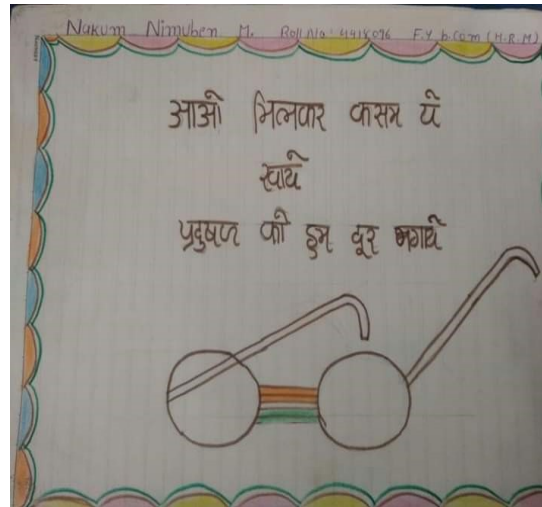 Nakum Nimuben M. Roll No. 4418096 F.Y b.com (H.R.M)
आओ मिलकर कसम ये
खाये
प्रदुषण को हम दूर भगाये